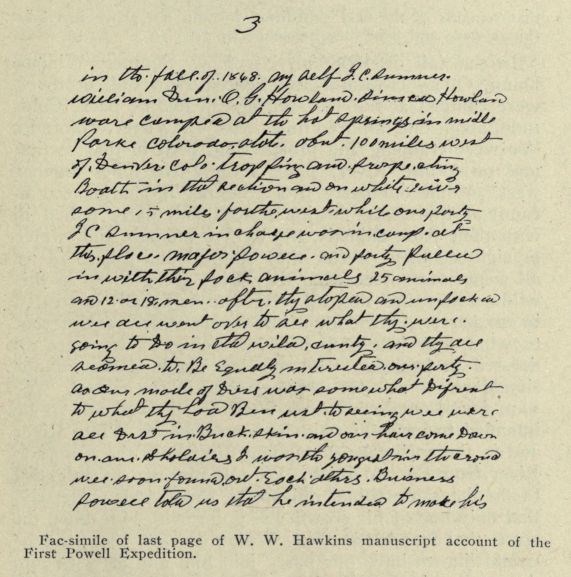 3
in the fall of 1868. my self J. C. Sumner.
William Dun. O. G. Howland. Howland
ware camped at the hot springs in midle
Parke Colorado. abut. 100 miles west
of. Denver Colo. trapping and prospecting
Boath in that section and on white river
some 15 miles. forthe west. while our party
J C Sumner in charge was in camp. at
this place. major Powell. and party Pulled
in with thir pack animals 25 animals
and 12. or 18. men. after. thy stoped and unpacked
wee all went over to see what thy. were.
going to Do in that wild. cuntry. and thy all
seamed. to. Be Equaly intrested our party.
as our mode of Dress was somewhat Difrent
to what thy had Ben ust. to seeing wee were
all Drst in Buck. skin. and our hair come Down
on our. sholders I was the yongest in the croud
wee soon found out. Each others. Buisness
Powell told us that he intended to make his
Fac-simile of last page of W. W. Hawkins manuscript account of the
First Powell Expedition.